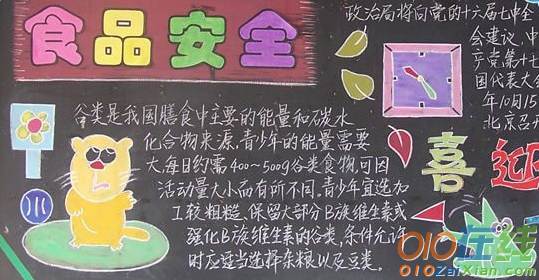 食品安全
谷类是我国膳食中主要的能量和碳水
化合物来源.青少年的能量需要
大,每日约需400～500g谷类食物,可因
活动量大小而有所不同.青少年宜选加
工较粗糙、保留大部分B族维生素或
强化B族维生素的谷类,条件允许
时应适当选择杂粮以及豆类.
政治局将向党的十六届七中全
会建议,中
产党第十七
国代表大会
年10月15
北京召开
喜迎
010在线
010zaixian.com